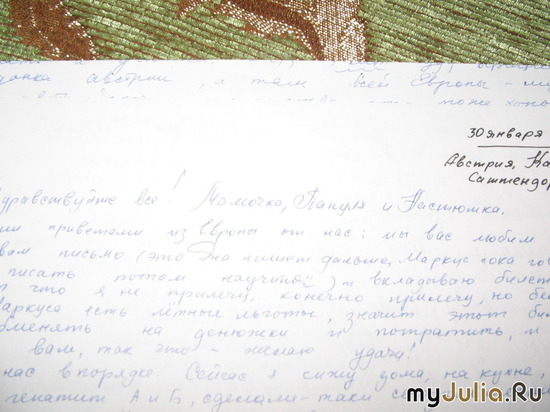 цанка австрии, а там всей Европы - 
може
30 января
Австрия, Ка
Саттендор
дравствуйте все! Мамочка, Папуля и Настюшка.
ми приветами из Европы от нас: мы вас любим
вам письмо (это она пишет дальше, Маркус пока гов
писать потом научится) и вкладываю билет
т что я не прилечу, конечно прилечу, но бе
аркуса есть лётные льготы, значит этот би
обменять на денюжки и потратить, и
вам, так что - желаю удачи!
нас в порядке. Сейчас я сижу дома, на кухне,
гепатит А и Б, сделали-таки се
myJulia.Ru